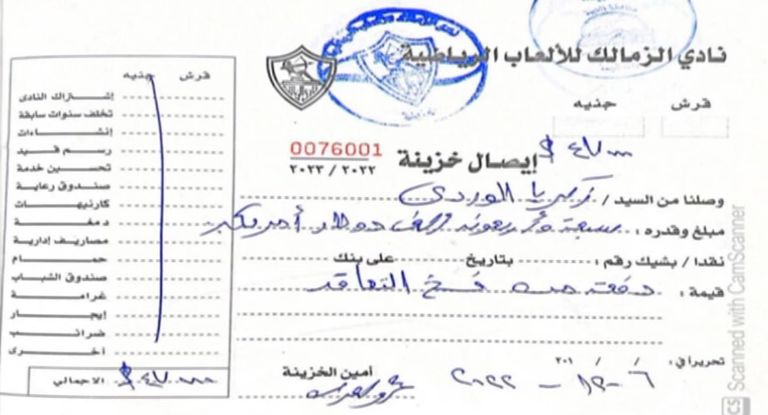 نادي الزمالك للألعاب الرياضية
قرش جنيه
إيصال خزينة $ ٤٧٠٠٠
0076001
٢٠٢٢ / ٢٠٢٣
وصلنا من السيد / زكريا الوردي
مبلغ وقدره : سبعة وأربعون ألف دولار أمريكي
نقدا / بشيك رقم : بتاريخ على بنك
قيمة : دفعة من فسخ التعاقد
تحريرا في : / / ٢٠١
٦ - ١٢ - ٢٠٢٢
أمين الخزينة
قرش جنيه
إشتراك النادى
تخلف سنوات سابقة
إنشاءات
رسم قيد
تحسين خدمة
صندوق رعاية
كارنيهات
دمغة
مصاريف إدارية
حمام
صندوق الشباب
غرامة
إيجار
ضرائب
أخرى
الاجمالى $ ٤٧٠٠٠
CS Scanned with CamScanner